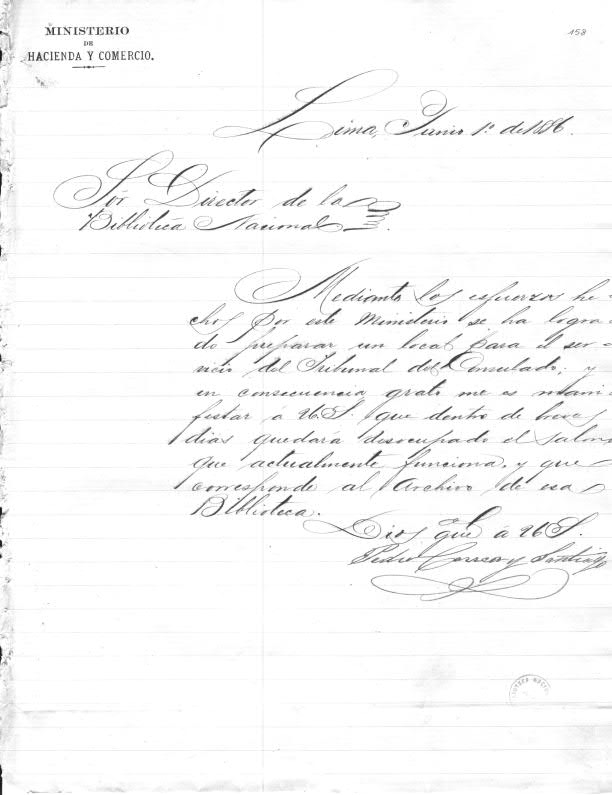 MINISTERIO
DE
HACIENDA Y COMERCIO.
158
Lima, Junio 1º de 1886.
Sōr Director de la
Biblioteca Nacional.
Mediante los esfuerzos he-
chos por este Ministerio se ha logra
do preparar un local para el ser-
vicio del Tribunal del Consulado; y
en consecuencia grato me es mani-
festar á US. que dentro de breves
dias quedará desocupado el salon
que actualmente funciona, y que
corresponde al Archivo de esa
Biblioteca.
Dios gue á US.
Pedro Correa y Santiago